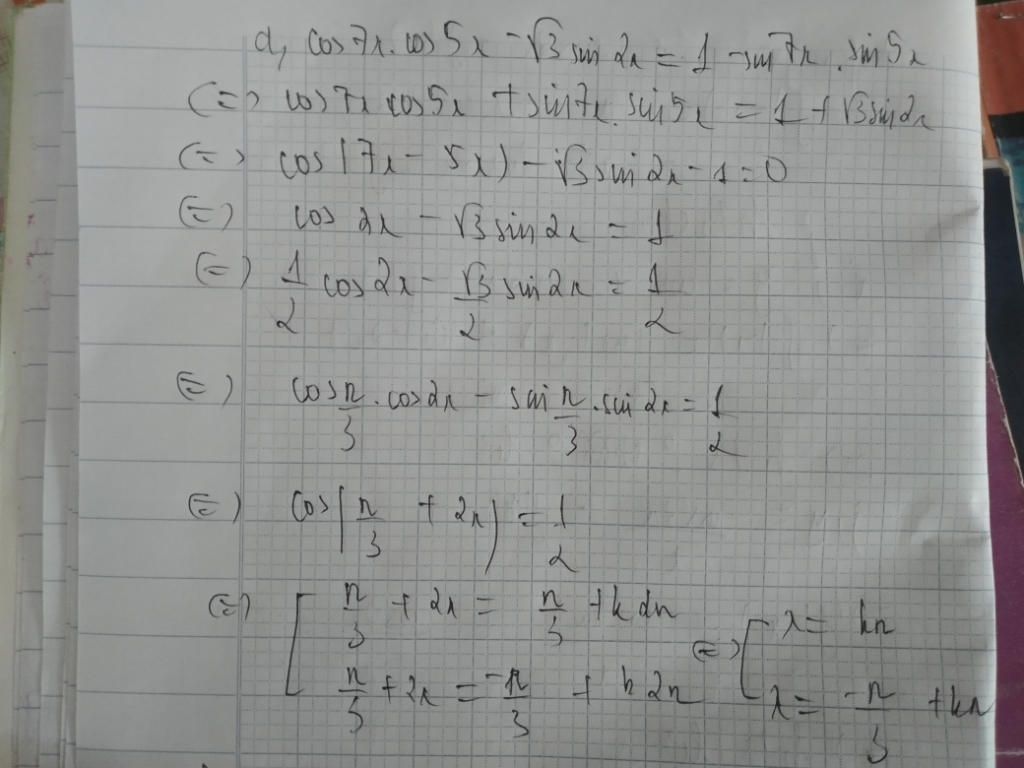 d, cos7x.cos5x - √3 sin2x = 1 - sin7x.sin5x
(=) cos7x cos5x + sin7x.sin5x = 1 + √3sin2x
(=) cos(7x - 5x) - √3 sin2x - 1 = 0
(=) cos 2x - √3 sin2x = 1
(=) 1/2 cos2x - √3/2 sin2x = 1/2
(=) cos π/3 .cos2x - sin π/3 .sin 2x = 1/2
(=) cos(π/3 + 2x) = 1/2
(=) [ π/3 + 2x = π/3 + k2π (=) [ x = kπ
π/3 + 2x = -π/3 + k2π x = -π/3 + kπ